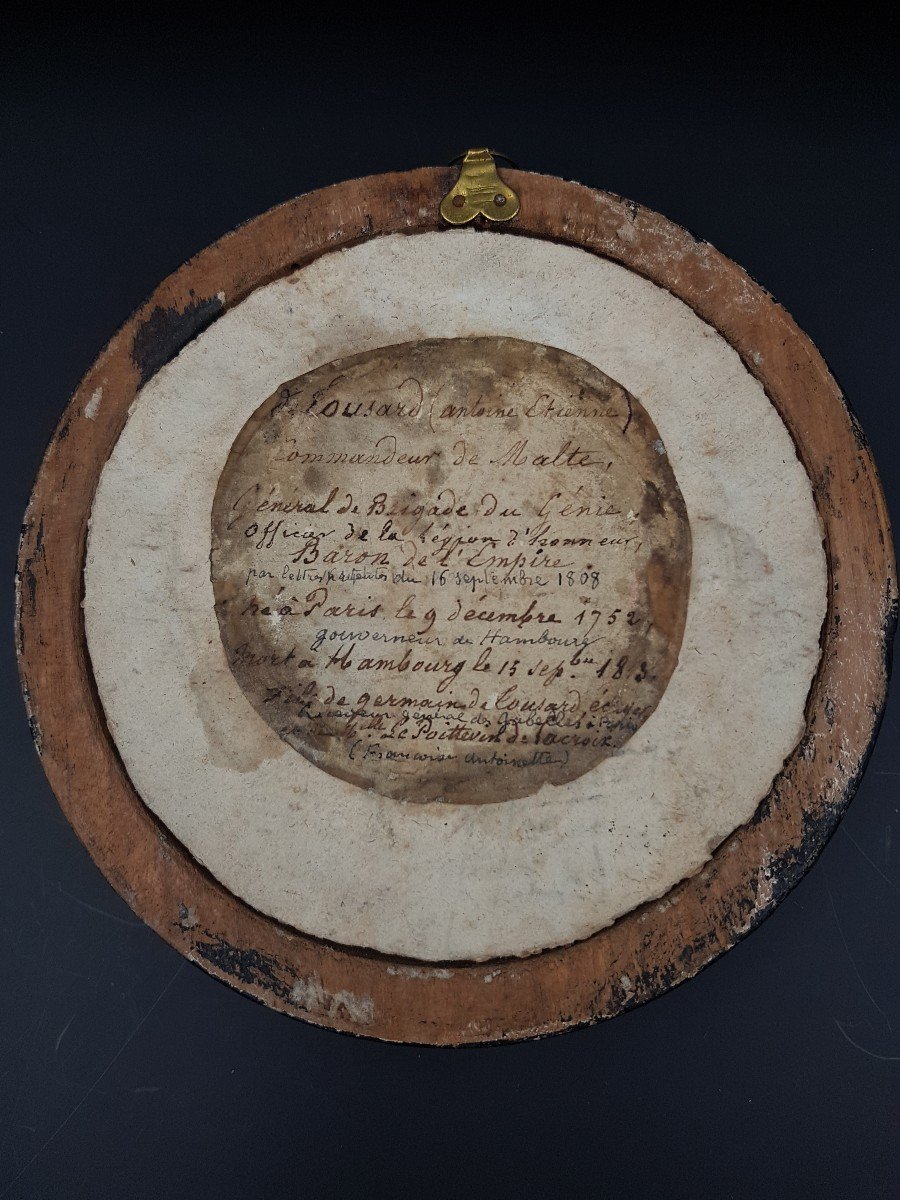 de Tousard (antoine Etienne)
Commandeur de Malte,
Général de Brigade du Génie
officier de la Légion d'honneur,
Baron de l'Empire
par lettres patentes du 16 septembre 1808
né à Paris le 9 décembre 1752,
gouverneur de Hambourg
Mort à Hambourg le 15 sepbre 1813.
de germain de tousard
général des Gabelles
Le Poittevin de lacroix
(Françoise antoinette)